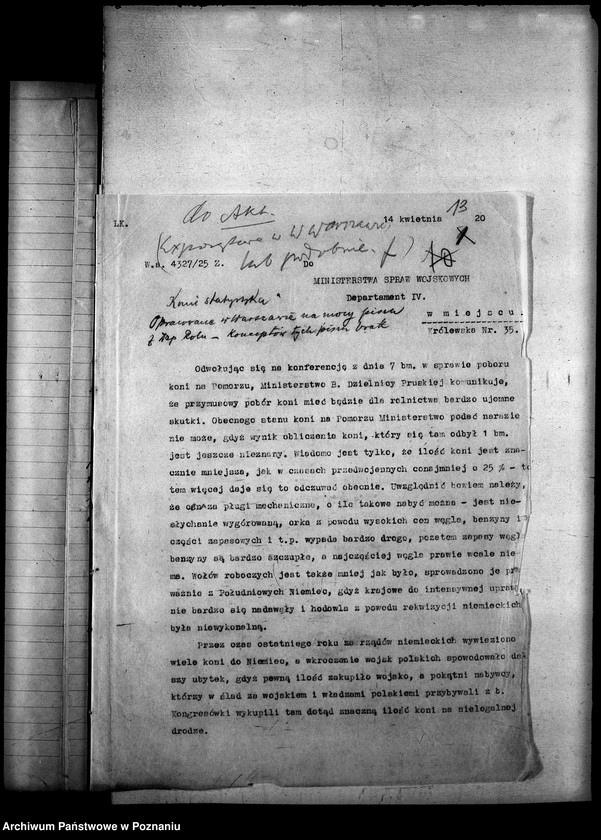 do Akt.
LK.
14 kwietnia 13 20
(Expozytura w Warszawie
W.a. 4327/25 Z.
lub podobnie.)
Do
MINISTERSTWA SPRAW WOJSKOWYCH
"Konie statystyka"
Departament IV.
Opracowane w Warszawie na mocy pisma
w miejscu.
z Wyp. Roln - Konceptów tych pism brak
Królewska Nr. 35.
Odwołując się na konferencję z dnia 7 bm. w sprawie poboru
koni na Pomorzu, Ministerstwo B. Dzielnicy Pruskiej komunikuje,
że przymusowy pobór koni mieć będzie dla rolnictwa bardzo ujemne
skutki. Obecnego stanu koni na Pomorzu Ministerstwo podać narazie
nie może, gdyż wynik obliczenia koni, który się tam odbył 1 bm.
jest jeszcze nieznany. Wiadomo jest tylko, że ilość koni jest zna-
cznie mniejsza, jak w czasach przedwojennych conajmniej o 25 % - to
tem więcej daje się to odczuwać obecnie. Uwzględnić bowiem należy,
że cena za pługi mechaniczne, o ile takowe nabyć można - jest nie-
słychanie wygórowaną, orka z powodu wysokich cen węgla, benzyny i
części zapasowych i t.p. wypada bardzo drogo, pozatem zapasy węgl
benzyny są bardzo szczupłe, a najczęściej węgla prawie wcale nie-
ma. Wołów roboczych jest także mniej jak było, sprowadzono je prze
ważnie z Południowych Niemiec, gdyż krajowe do intensywnej upraw
nie bardzo się nadawały i hodowla z powodu rekwizycji niemieckich
była niewykonalną.
Przez czas ostatniego roku za rządów niemieckich wywieziono
wiele koni do Niemiec, a wkroczenie wojsk polskich spowodowało dal
szy ubytek, gdyż pewną ilość zakupiło wojsko, a pokątni nabywcy,
którzy w ślad za wojskiem i władzami polskiemi przybywali z b.
Kongresówki wykupili tam dotąd znaczną ilość koni na nielegalnej
drodze.
Archiwum Państwowe w Poznaniu